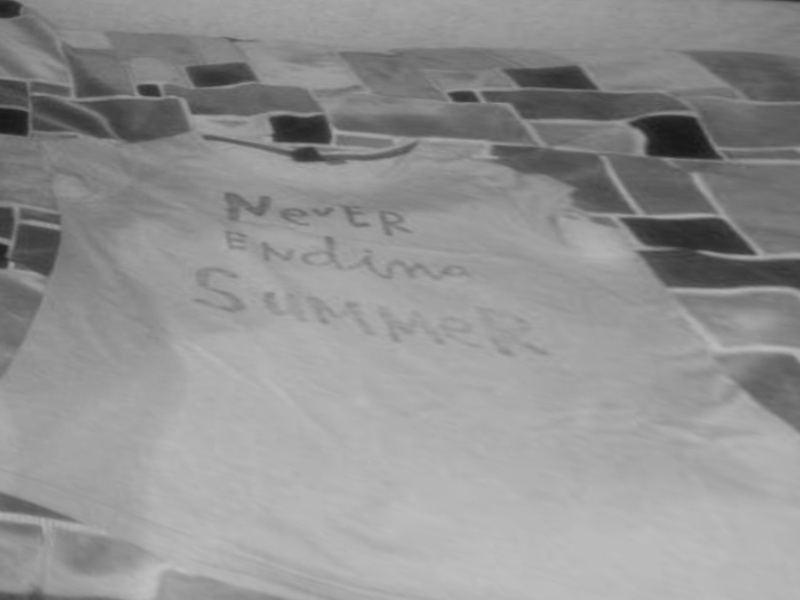 NevER
ENdina
SuMMeR